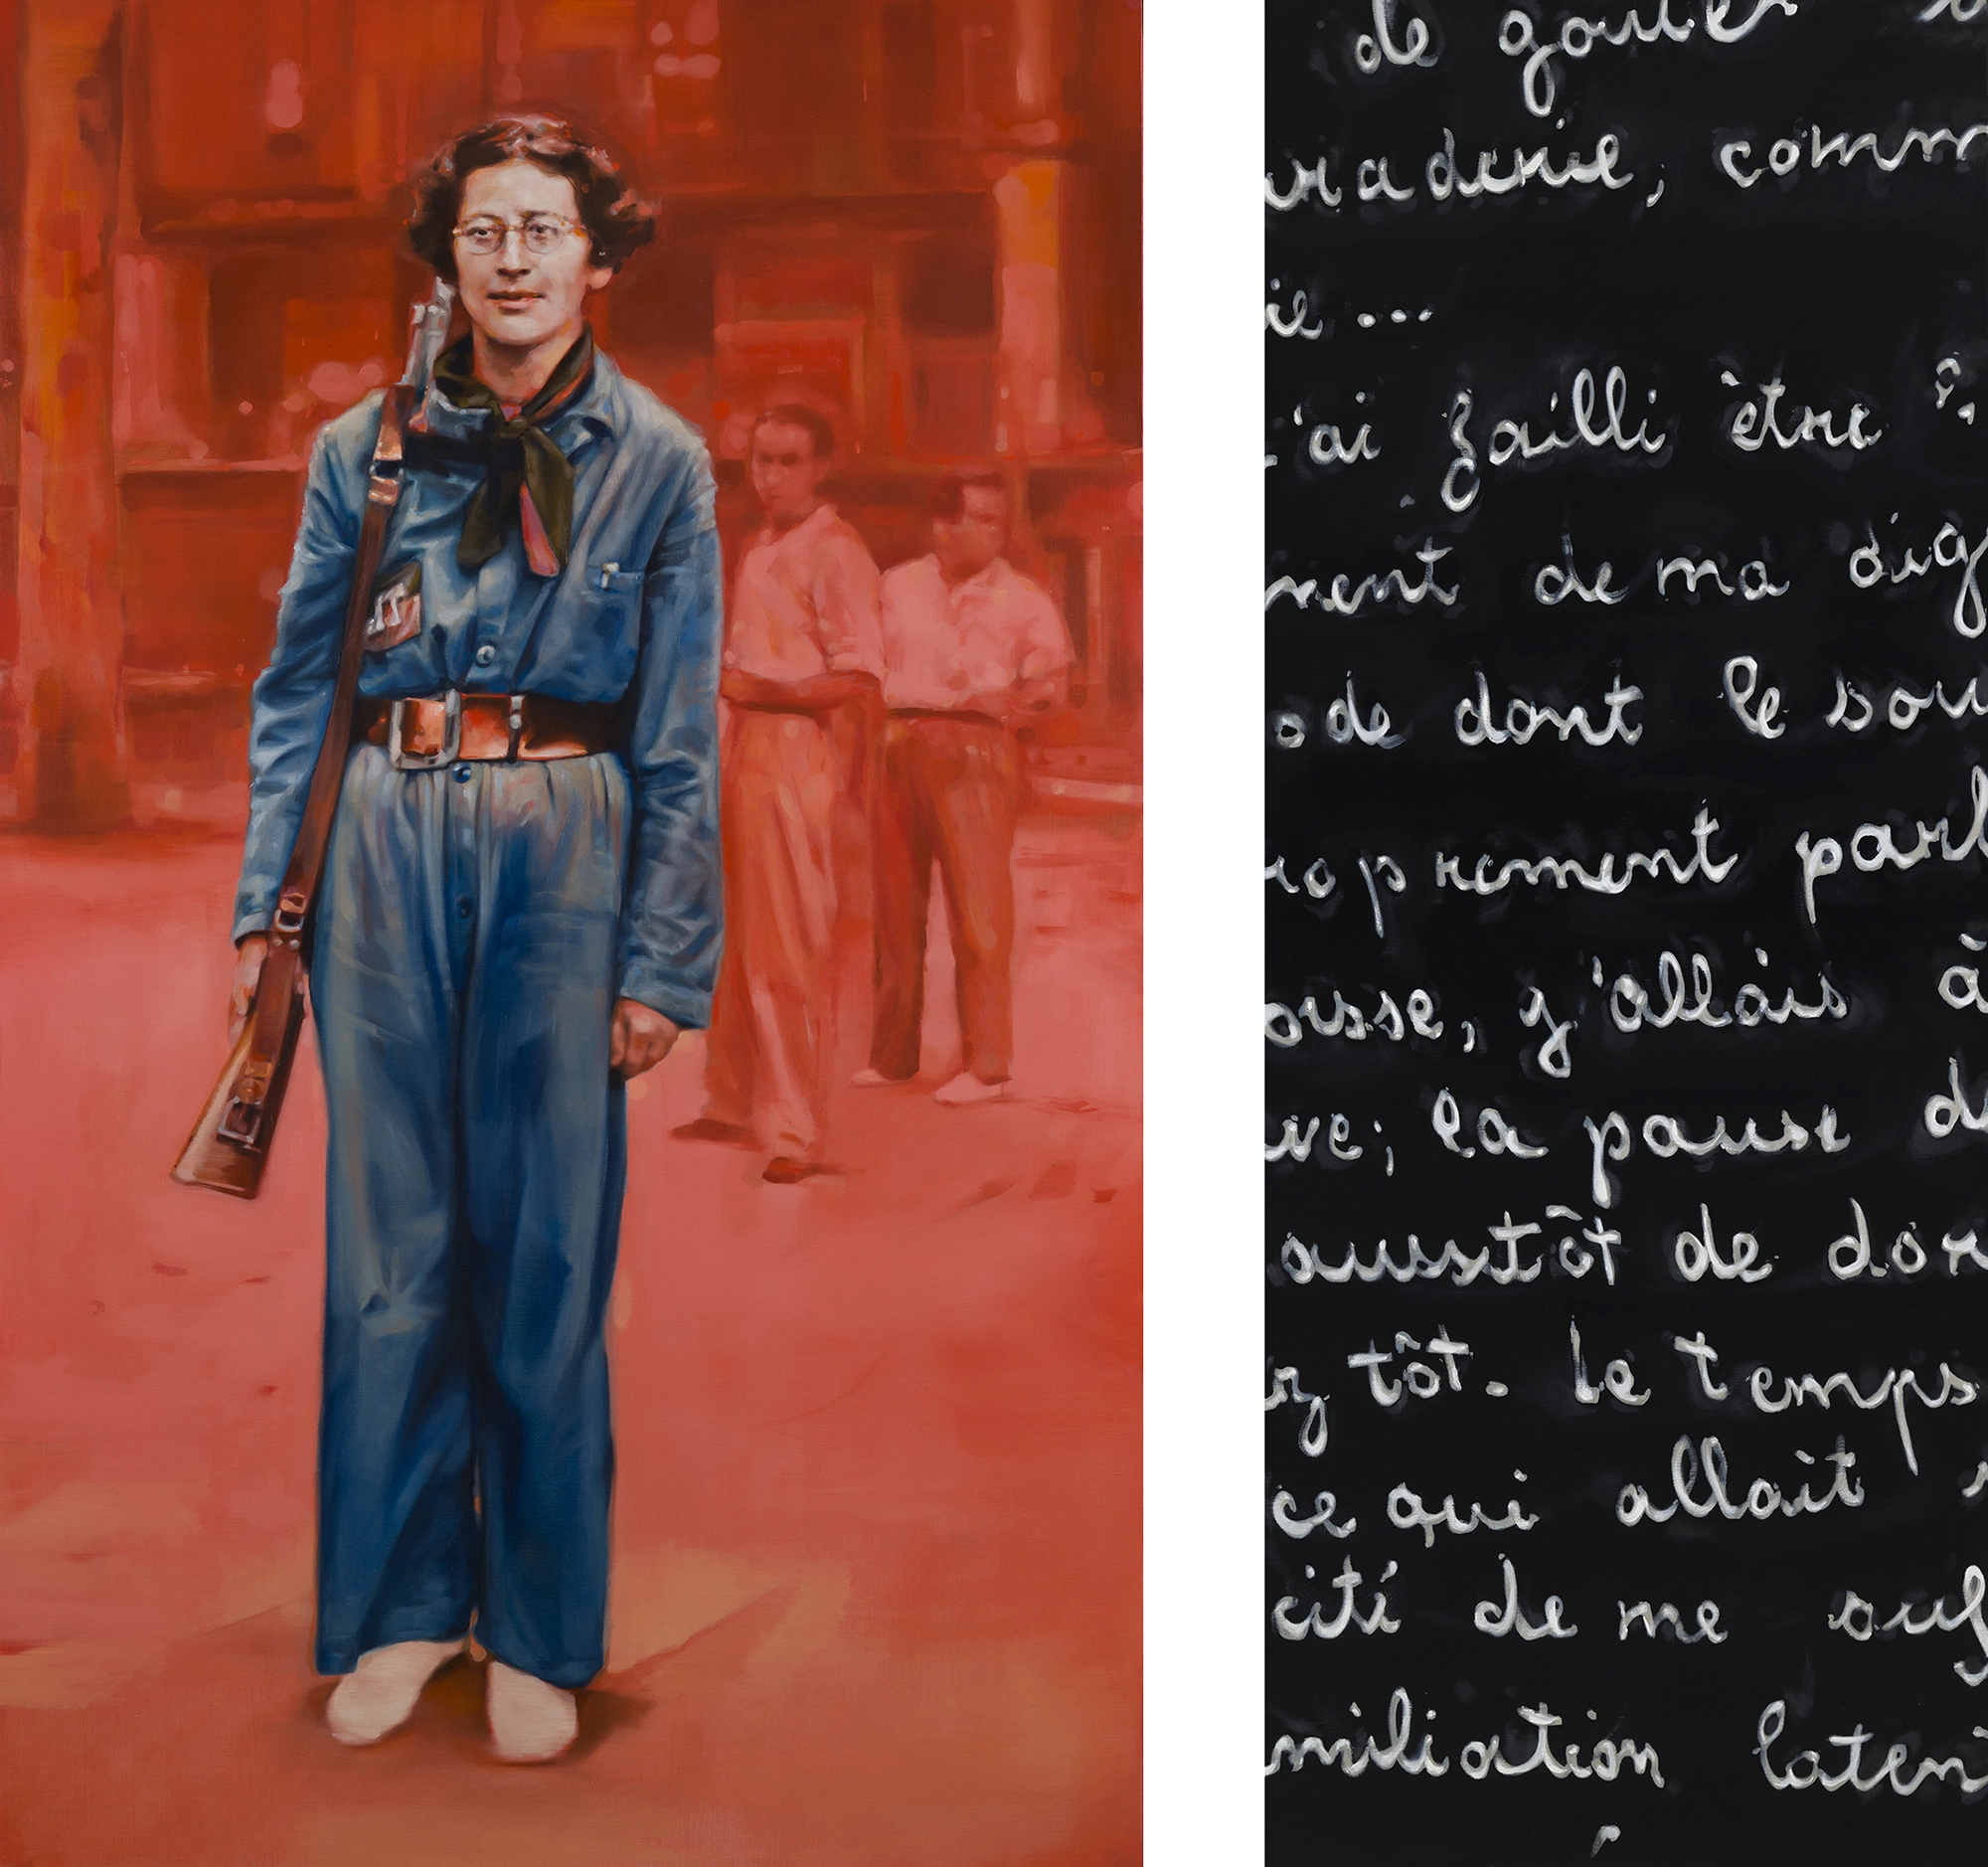 NT
de goûter
raderie, comm
ie ...
'ai failli être
ment de ma dig
ode dont le sou
roprement parl
oisse, j'allais à
ive; la pause d
aussitôt de dor
ez tôt. Le temps
ce qui allait
cité de me suf
miliation laten